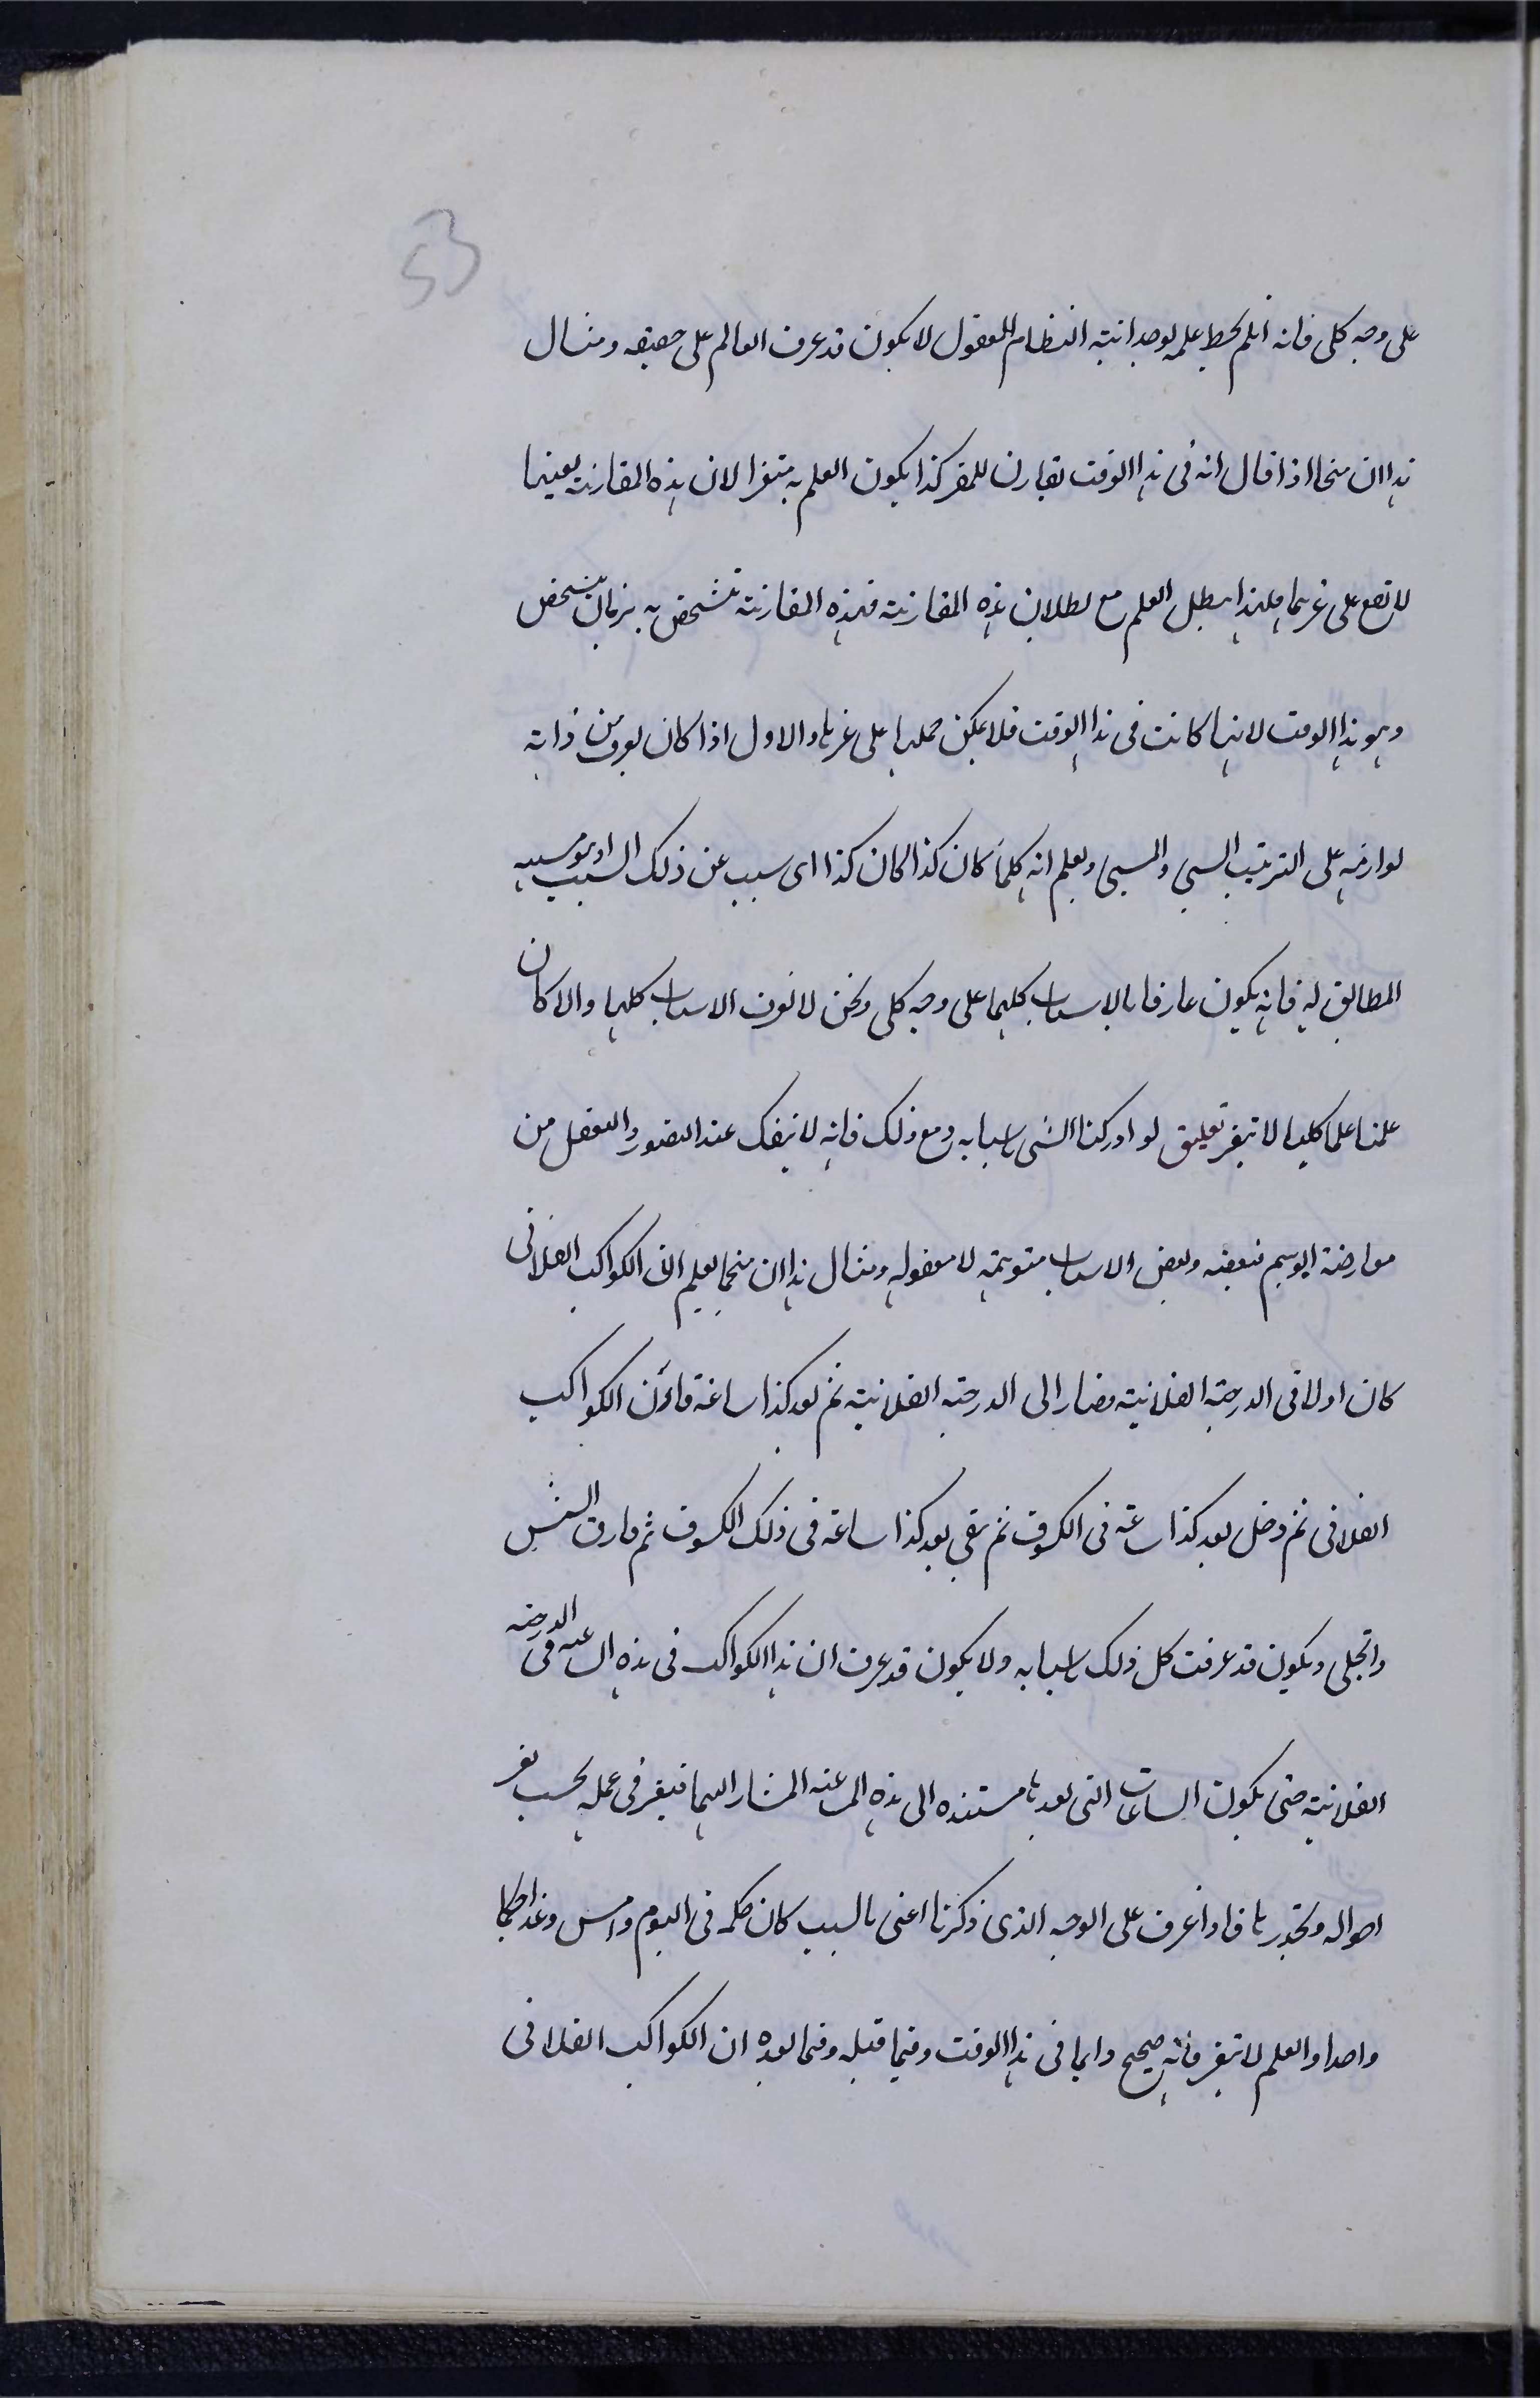 53
على وجه كلى فانه ان لم يحط علمه بوحدانية النظام المعقول لا يكون قد عرف العالم على حقيقه ومثال
هذا ان منجما اذا قال انه فى هذا الوقت تقارن للقمر كذا يكون العلم به متغيرا لان هذه المقارنة بعينها
لا تقع على غيرها فلهذا يبطل العلم مع بطلان هذه المقارنة فهذه المقارنة تتشخص به بزمان متشخص
وهو هذا الوقت لانها كانت فى هذا الوقت فلا يمكن حملها على غيرها والاول اذا كان يعرف من ذاته
لوازمه على الترتيب السببى والمسببى ويعلم انه كلما كان كذا كان كذا اى سبب عن ذلك السبب
المطابق له فانه يكون عارفا بالاسباب كلها على وجه كلى ونحن لا نعرف الاسباب كلها والا كان
علمنا علما كليا لا يتغير تعليق لو ادركنا الشى باسبابه ومع ذلك فانه لا ينفك عند التصور والتعقل من
معارضة الوهم فبعضه وبعض الاسباب متوهمة لا معقولة ومثال هذا ان منجما يعلم ان الكواكب الفلانى
كان اولا فى الدرجة الفلانية فصار الى الدرجة الفلانية ثم بعد كذا ساعة قارن الكواكب
الفلانى ثم دخل بعد كذا ساعة فى الكسوف ثم بقى بعد كذا ساعة فى ذلك الكسوف ثم فارق الشمس
وانجلى ويكون قد عرفت كل ذلك باسبابه ولا يكون قد عرف ان هذا الكواكب فى هذه الساعة فى الدرجة
الفلانية حتى يكون الساعات التى بعدها مستنده الى هذه الساعة المشار اليها فيتغير فى عمله بحسب تغير
احواله وتجددها فاذا عرف على الوجه الذى ذكرنا اعنى بالسبب كان حكمه فى اليوم وامس وغدا حكما
واحدا والعلم لا يتغير فانه صحيح دايما فى هذا الوقت وفيما قبله وفيما بعده ان الكواكب الفلانى